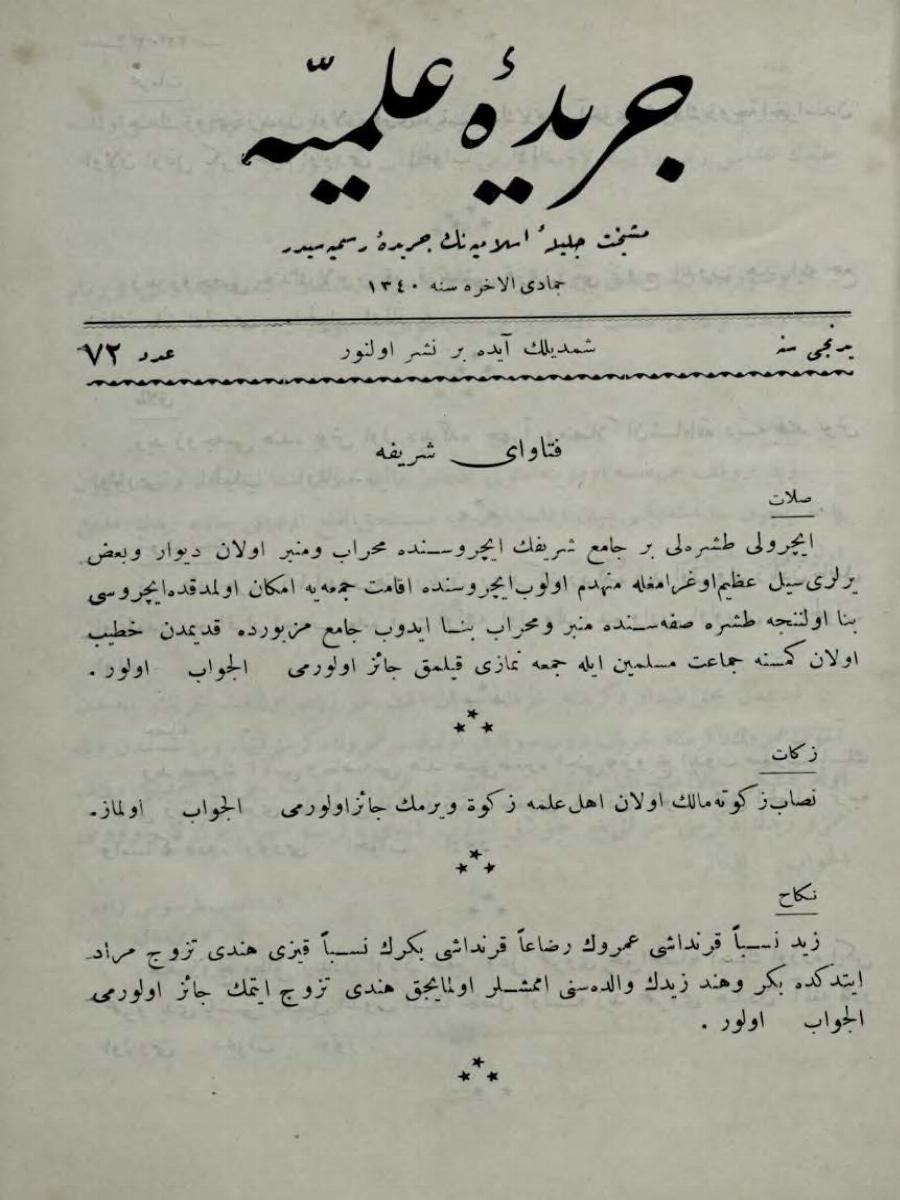 جريدۀ علميّه
مشيخت جليلۀ اسلاميه‌نك جريدۀ رسميه‌سيدر
جمادى الاخره سنه ١٣٤٠
يدنجى سنه شمديلك آيده بر نشر اولنور عدد ٧٢
فتاواى شريفه
صلات
ايچرولى طشره‌لى بر جامع شريفك ايچروسنده محراب ومنبر اولان ديوار وبعض
يرلرى سيل عظيم اوغرامغله منهدم اولوب ايچروسنده اقامت جمعه‌يه امكان اولمدقده ايچروسى
بنا اولننجه طشره صفه‌سنده منبر ومحراب بنا ايدوب جامع مزبورده قديمدن خطيب
اولان كمسنه جماعت مسلمين ايله جمعه نمازى قيلمق جائز اولورمى الجواب اولور .
٭٭٭
زكات
نصاب زكوته مالك اولان اهل علمه زكوة ويرمك جائز اولورمى الجواب اولماز .
٭٭٭
نكاح
زيد نسباً قرنداشى عمروك رضاعاً قرنداشى بكرك نسباً قيزى هندى تزوج مراد
ايتدكده بكر وهند زيدك والده‌سنى اممشلر اولمايجق هندى تزوج ايتمك جائز اولورمى
الجواب اولور .
٭٭٭